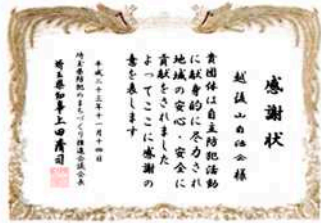 感謝状
越後山自治会様
貴団体は自主防犯活動
に献身的に尽力され
地域の安心・安全に
貢献をされました
よってここに感謝の
意を表します
平成二十三年十一月十四日
埼玉県防犯のまちづくり推進会議会長
埼玉県知事上田清司